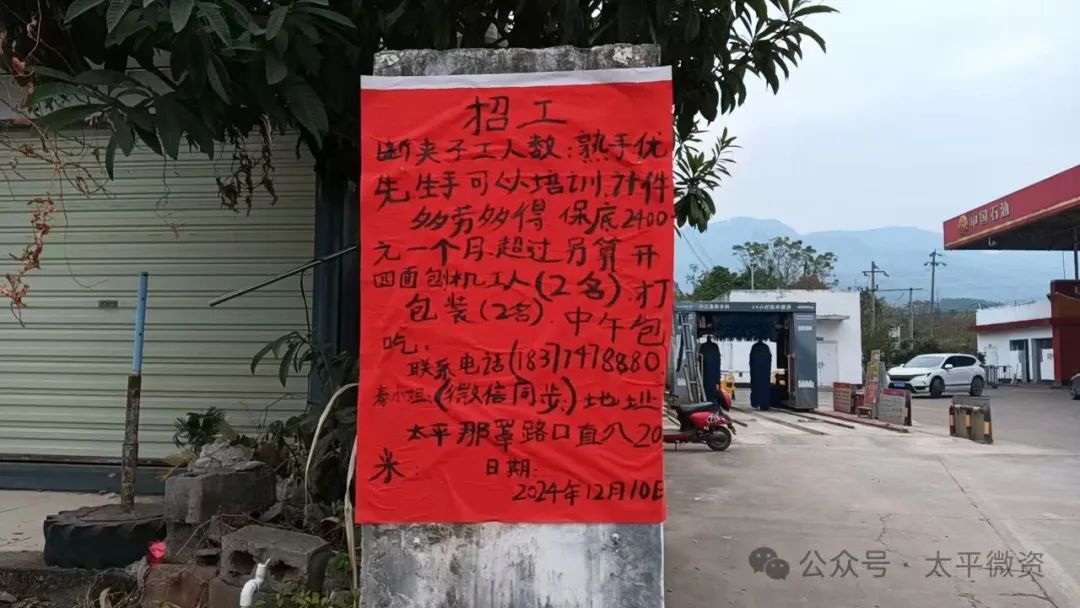 招工
断夹子工人数:熟手优
先.生手可以培训.计件
多劳多得 保底2400
元一个月.超过另算 开
四面刨机工人(2名).打
包装(2名).中午包
吃.
联系电话(1837478880
秦小姐:(微信同步)地址
太平那罩路口直入20
米 日期:
2024年12月10日
中国石油
公众号 · 太平微资